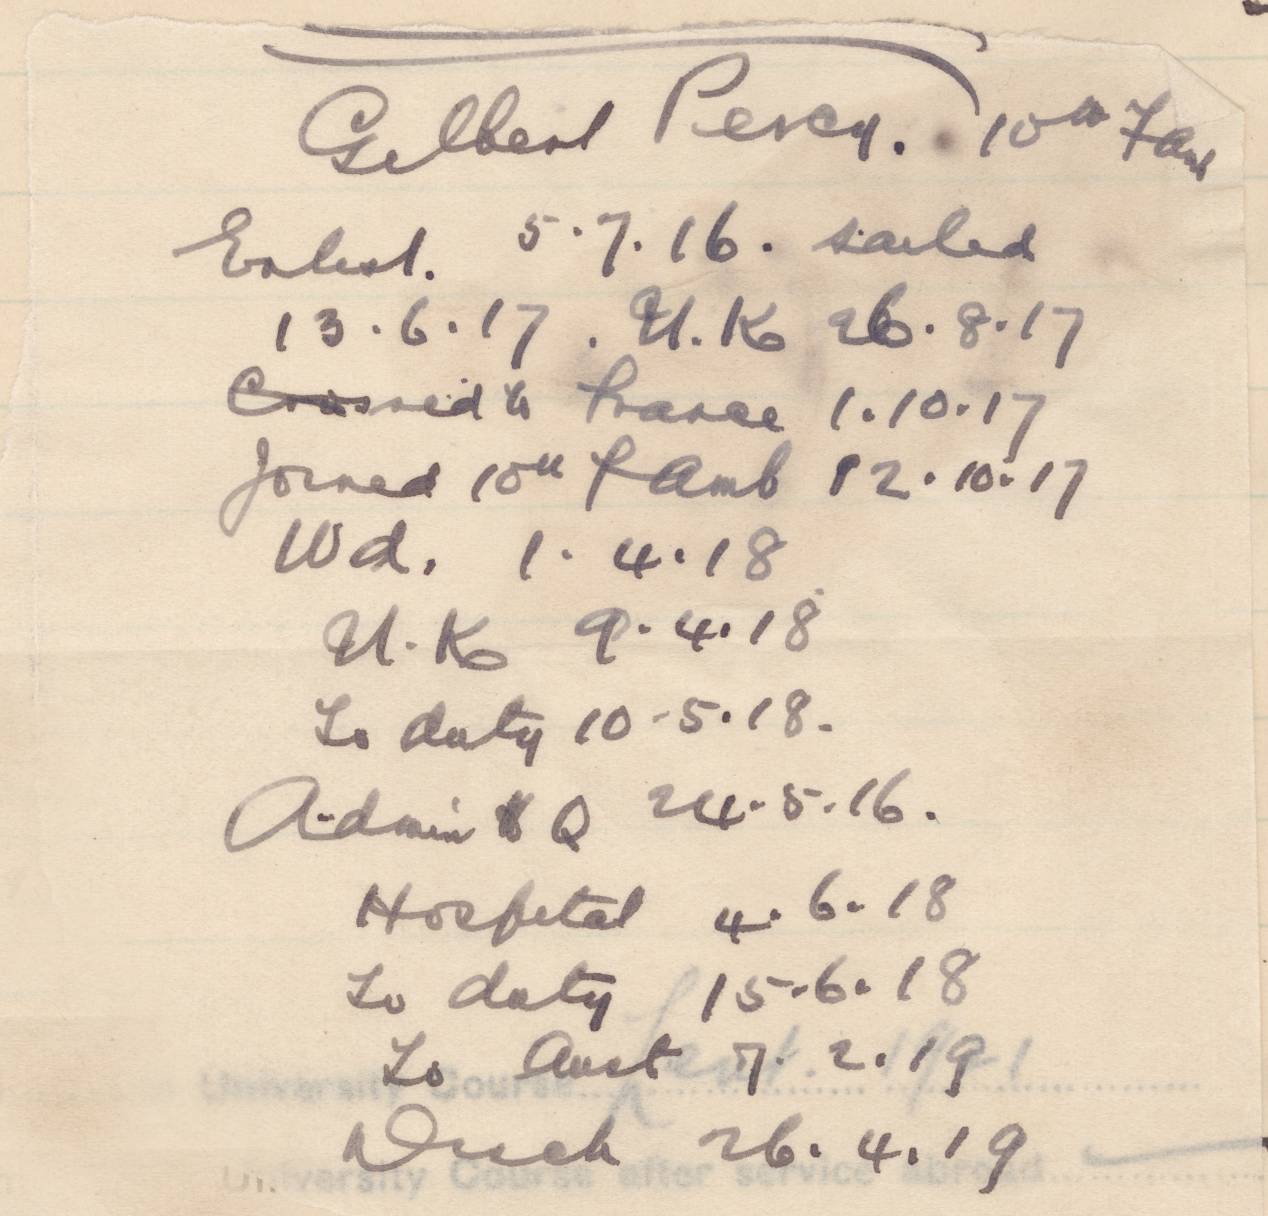 Gilbert Percy. 10th F amb
Enlist. 5.7.16. sailed
13.6.17. U.K 26.8.17
Crossed to France 1.10.17
Joined 10th F Amb 12.10.17
Wd. 1.4.18
U.K 9.4.18
To duty 10-5.18.
Admin Q 24.5.16.
Hospital 4.6.18
To duty 15.6.18
To Aust 7.2.19
University Course
Disch 26.4.19
University Course after service abroad